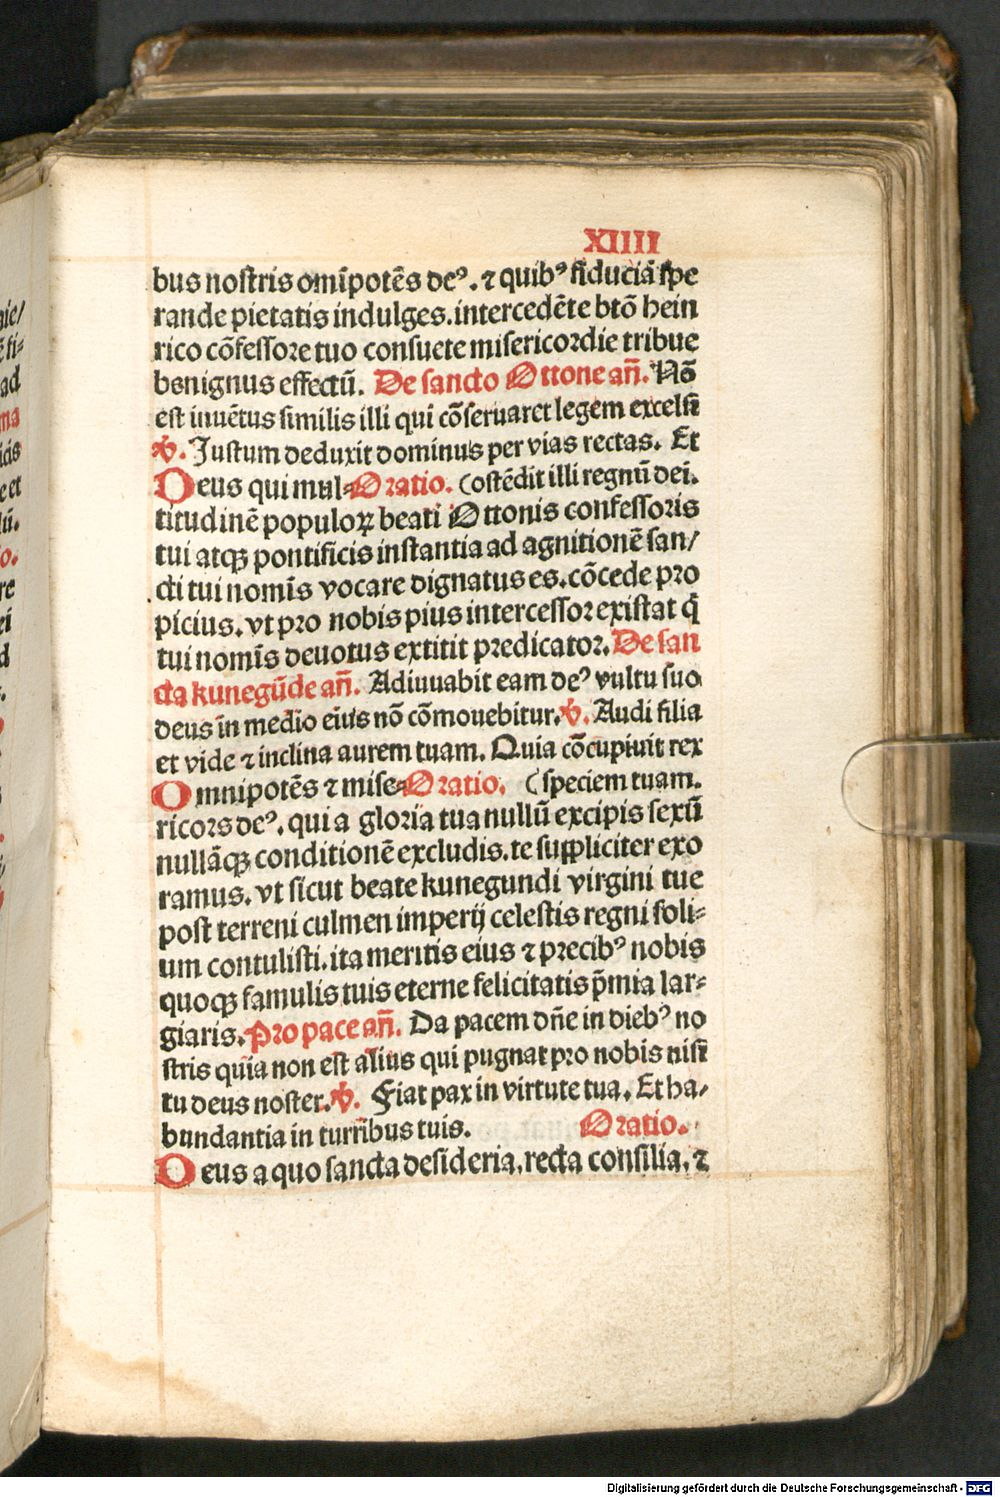 XIIII
bus nostris om̅ipotēs deꝰ. ⁊ quibꝰ fiduciā spe
rande pietatis indulges. intercedēte btō hein
rico cōfessore tuo consuete misericordie tribue
benignus effectū. De sancto Ottone añ. Nō
est inuētus similis illi qui cōseruaret legem excelsi
℣. Justum deduxit dominus per vias rectas. Et
Deus qui mul⸗Oratio. (ostēdit illi regnū dei.
titudinē populoꝝ beati Ottonis confessoris
tui atqꝫ pontificis instantia ad agnitionē san/
cti tui nomīs vocare dignatus es. cōcede pro
picius. vt pro nobis pius intercessor existat q̄
tui nomīs deuotus extitit predicator. De san
cta kunegūde añ. Adiuuabit eam deꝰ vultu suo
deus in medio eius nō cōmouebitur. ℣. Audi filia
et vide ⁊ inclina aurem tuam. Quia cōcupiuit rex
Omnipotēs ⁊ mise⸗Oratio. (speciem tuam.
ricors deꝰ. qui a gloria tua nullū excipis sexū
nullāqꝫ conditionē excludis. te suppliciter exo
ramus. vt sicut beate kunegundi virgini tue
post terreni culmen imperij celestis regni soli⸗
um contulisti. ita meritis eius ⁊ precibꝰ nobis
quoqꝫ famulis tuis eterne felicitatis p̄mia lar⸗
giaris. Pro pace añ. Da pacem dñe in diebꝰ no
stris quia non est alius qui pugnat pro nobis nisi
tu deus noster. ℣. Fiat pax in virtute tua. Et ha/
bundantia in turribus tuis. Oratio.
Deus a quo sancta desideria. recta consilia. ⁊
Digitalisierung gefördert durch die Deutsche Forschungsgemeinschaft - DFG